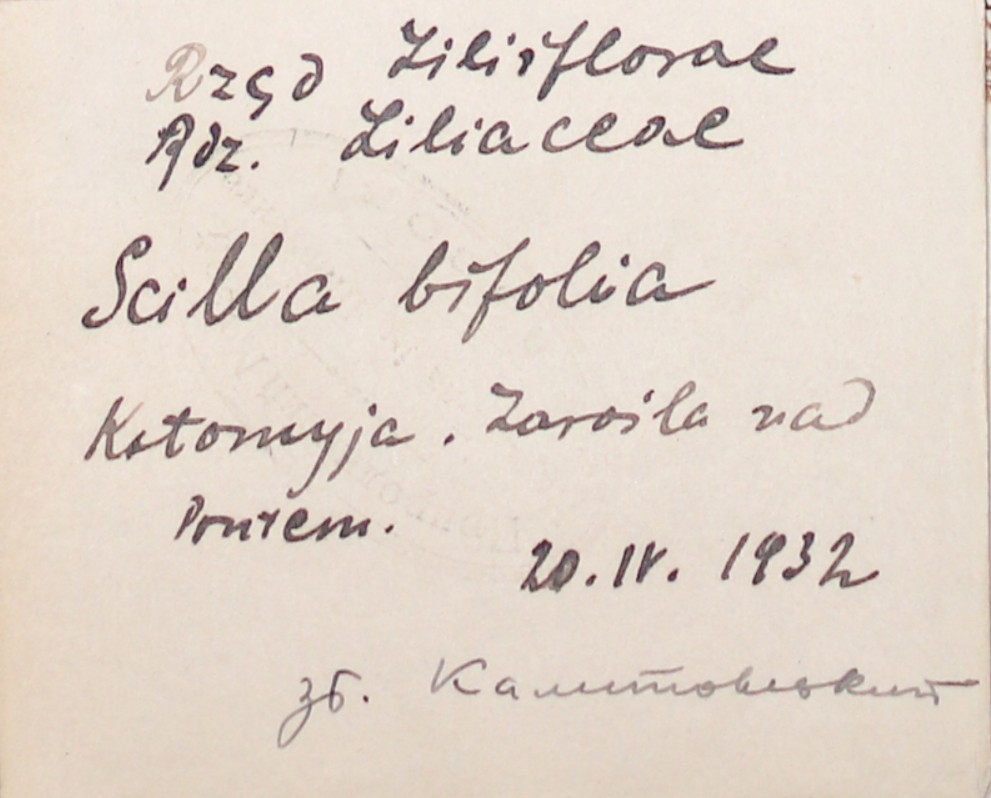 Rząd Liliiflorae
Rdz. Liliaceae
Scilla bifolia
Kołomyja. Zarośla nad
Prutem.
20.IV. 1932
зб.